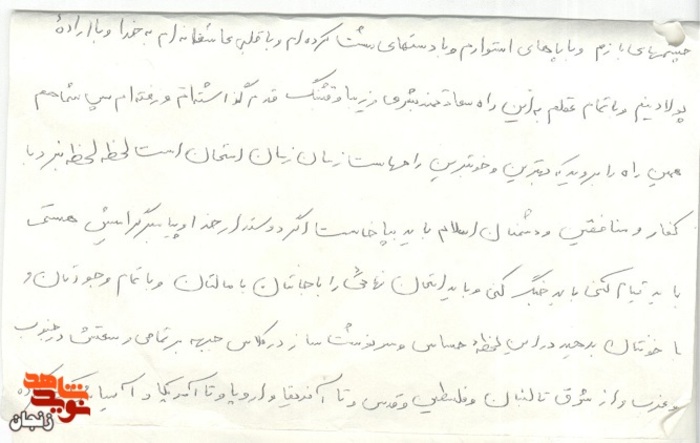 چشمهای بازم و با پاهای استوارم و با دستهای مشت کرده‌ام و با قلب عاشقانه‌ام به خدا و با ارادهٔ
پولادینم و با تمام عقلم به این راه سعادتمند بشری زیبا و قشنگ قدم گذاشته‌ام و رفته‌ام پس شما هم
همین راه را بروید که بهترین و خوبترین راههاست زمان زمان امتحان است لحظه لحظه نبرد با
کفار و منافقین و دشمنان اسلام باید بپا خاست اگر دوستدار خدا و پیامبر گرامیش هستی
باید قیام کنی باید جنگ کنی و باید امتحان نهائی را با جانتان با مالتان و با تمام وجودتان و
با خونتان بدهید در این لحظهٔ حساس و سرنوشت ساز در کلاس جبهه بر تمامی وسعتش در جنوب
و غرب و از شرق تا لبنان و فلسطین و قدس و تا آفریقا و اروپا و تا آمریکا و آسیا
نوید شاهد
زنجان